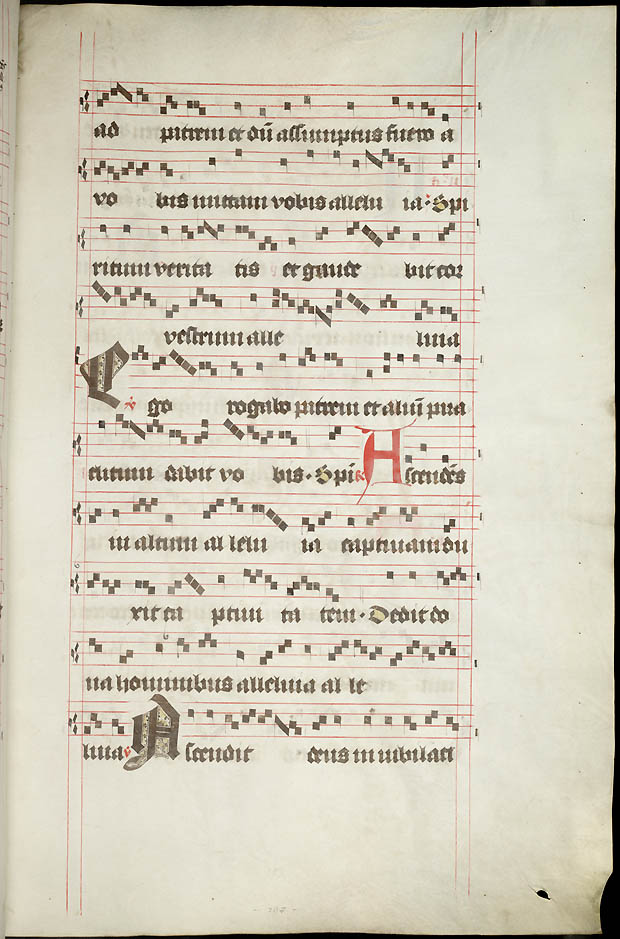 ad patrem et dū assumptus fuero a
vo bis mittam vobis allelu ia· Spi
ritum verita tis et gaude bit cor
vestrum alle luia
℣ Ego rogabo patrem et aliū para
clitum dabit vo bis· Spi ℟ Ascendēs
in altum al lelu ia captiuam du
xit ca ptiui ta tem· Dedit do
na hominibus alleluia al le
luia ℣ Ascendit deus in iubilati